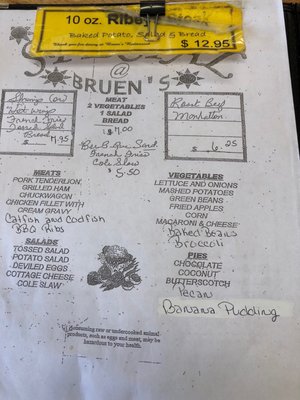 10 oz. Ribeye Steak
Baked Potato, Salad & Bread
Thank you for dining at Bruen's Restaurant
$ 12.95
@
BRUEN'S
MEAT
2 VEGETABLES
1 SALAD
BREAD
$7.00
French Fries
Bread
$ 7.95
Bar B Que Sand
French Fries
Cole Slaw
$ 5.50
Roast Beef
Manhattan
$ 6.25
MEATS
PORK TENDERLOIN
GRILLED HAM
CHUCKWAGON
CHICKEN FILLET WITH
CREAM GRAVY
Catfish and Codfish
BBQ Ribs
SALADS
TOSSED SALAD
POTATO SALAD
DEVILED EGGS
COTTAGE CHEESE
COLE SLAW
VEGETABLES
LETTUCE AND ONIONS
MASHED POTATOES
GREEN BEANS
FRIED APPLES
CORN
MACARONI & CHEESE
Baked Beans
Broccoli
PIES
CHOCOLATE
COCONUT
BUTTERSCOTCH
Pecan
Banana Pudding
Consuming raw or undercooked animal
products, such as eggs and meat, may be
hazardous to your health.